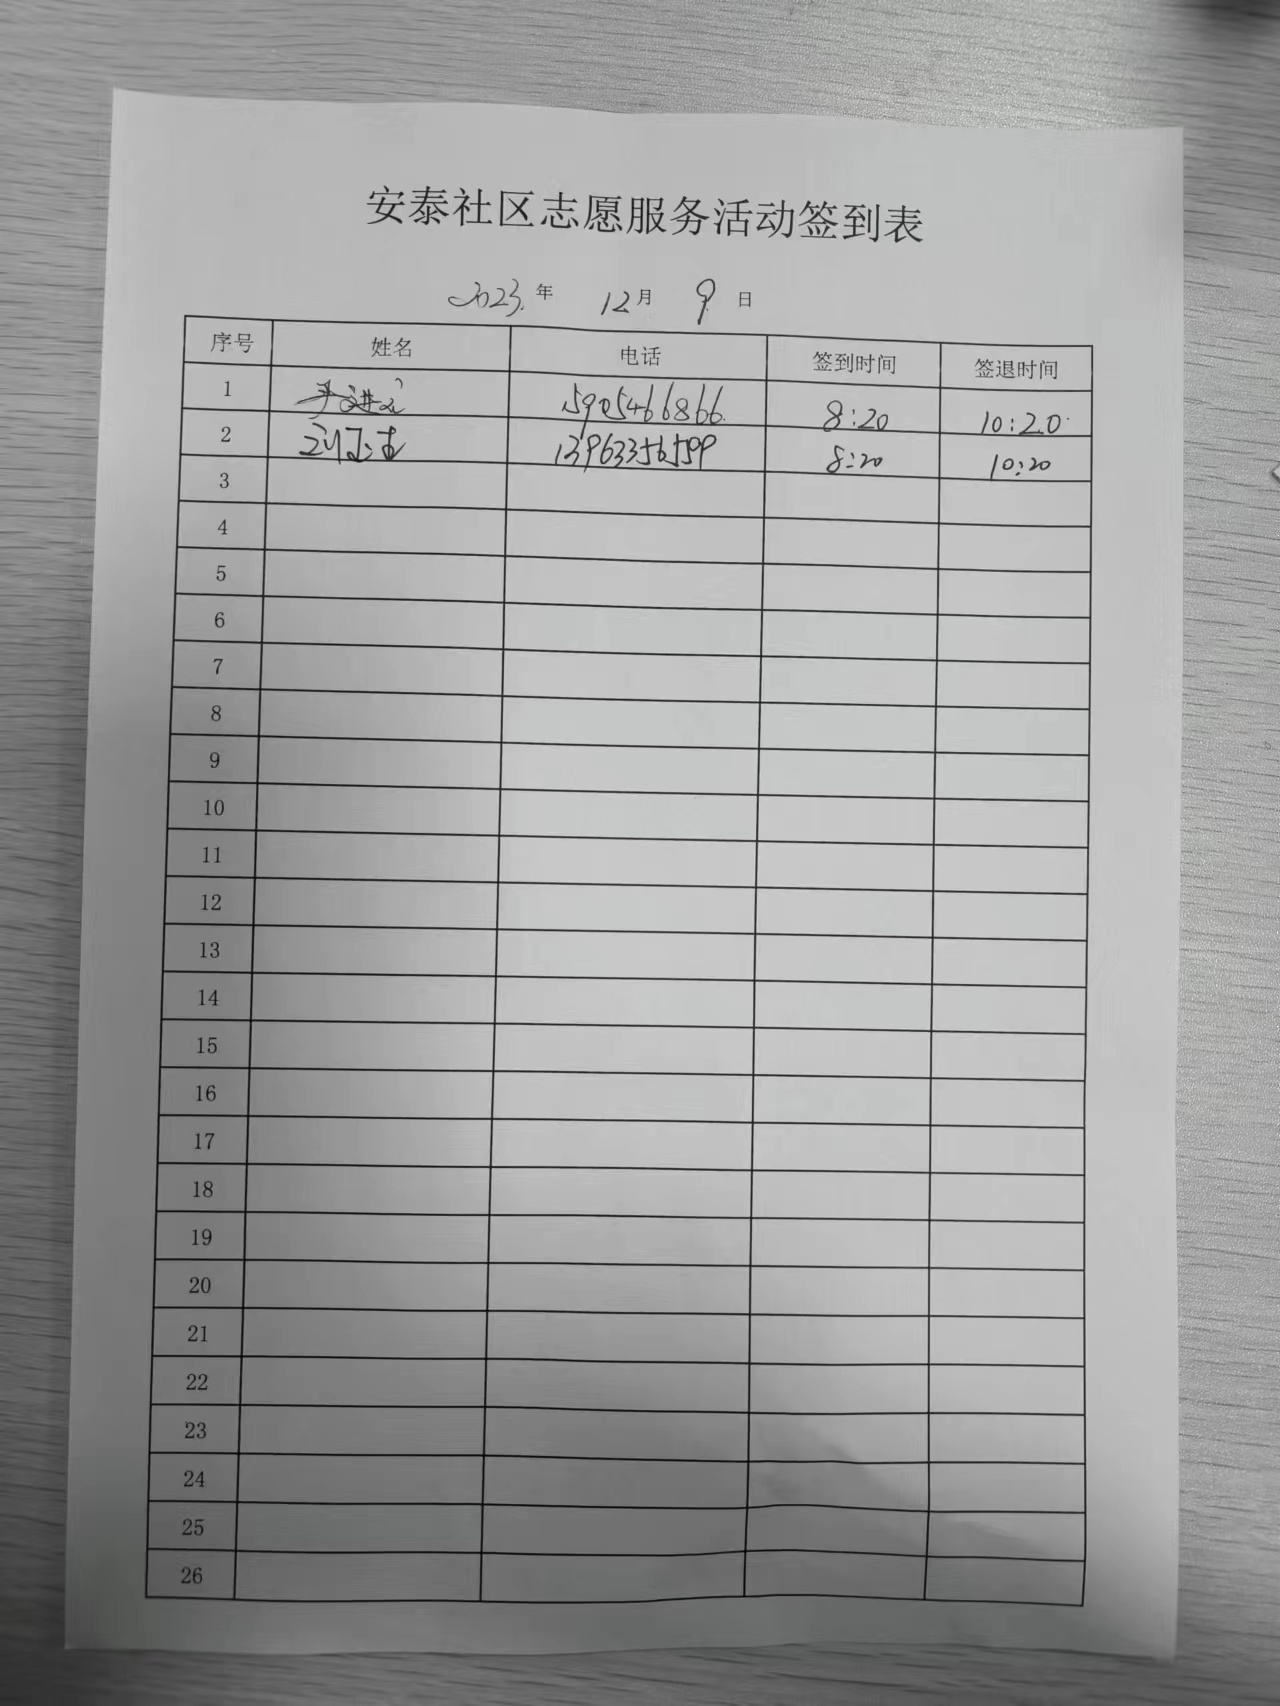 安泰社区志愿服务活动签到表
2023.年 12月 9日
序号 姓名 电话 签到时间 签退时间
1 15905466866 8:20 10:20
2 13963356599 8:20 10:20
3
4
5
6
7
8
9
10
11
12
13
14
15
16
17
18
19
20
21
22
23
24
25
26